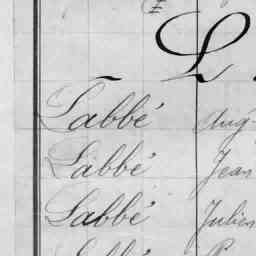 L
Labbé Aug
Labbé Jean
Labbé Julien
Labbé